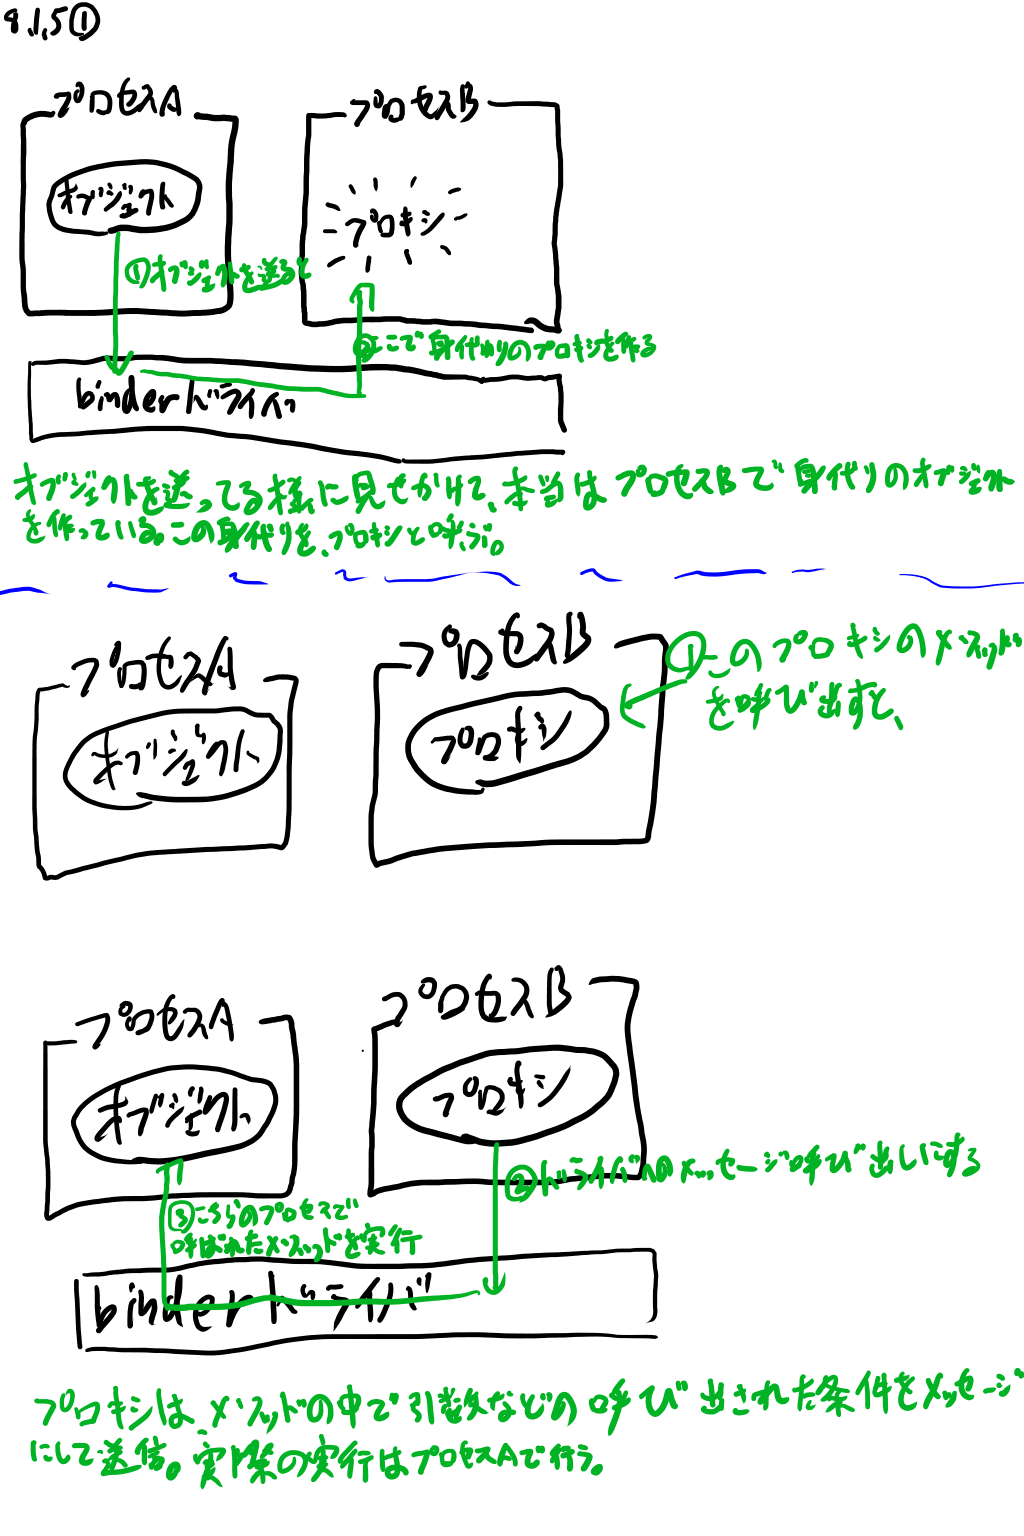 8.1.5①
プロセスA
プロセスB
オブジェクト
プロキシ
①オブジェクトを送ると
②ここで身代わりのプロキシを作る
binderドライバ
オブジェクトを送ってる様に見せかけて、本当はプロセスBで身代りのオブジェクト
を作っている。この身代りを、プロキシと呼ぶ。
プロセスA
プロセスB
オブジェクト
プロキシ
①このプロキシのメソッド
を呼び出すと、
プロセスA
プロセスB
オブジェクト
プロキシ
②ドライバへのメッセージ呼び出しにする
③こちらのプロセスで
呼ばれたメソッドを実行
binderドライバ
プロキシは、メソッドの中で引数などの呼び出された条件をメッセージ
にして送信。実際の実行はプロセスAで行う。